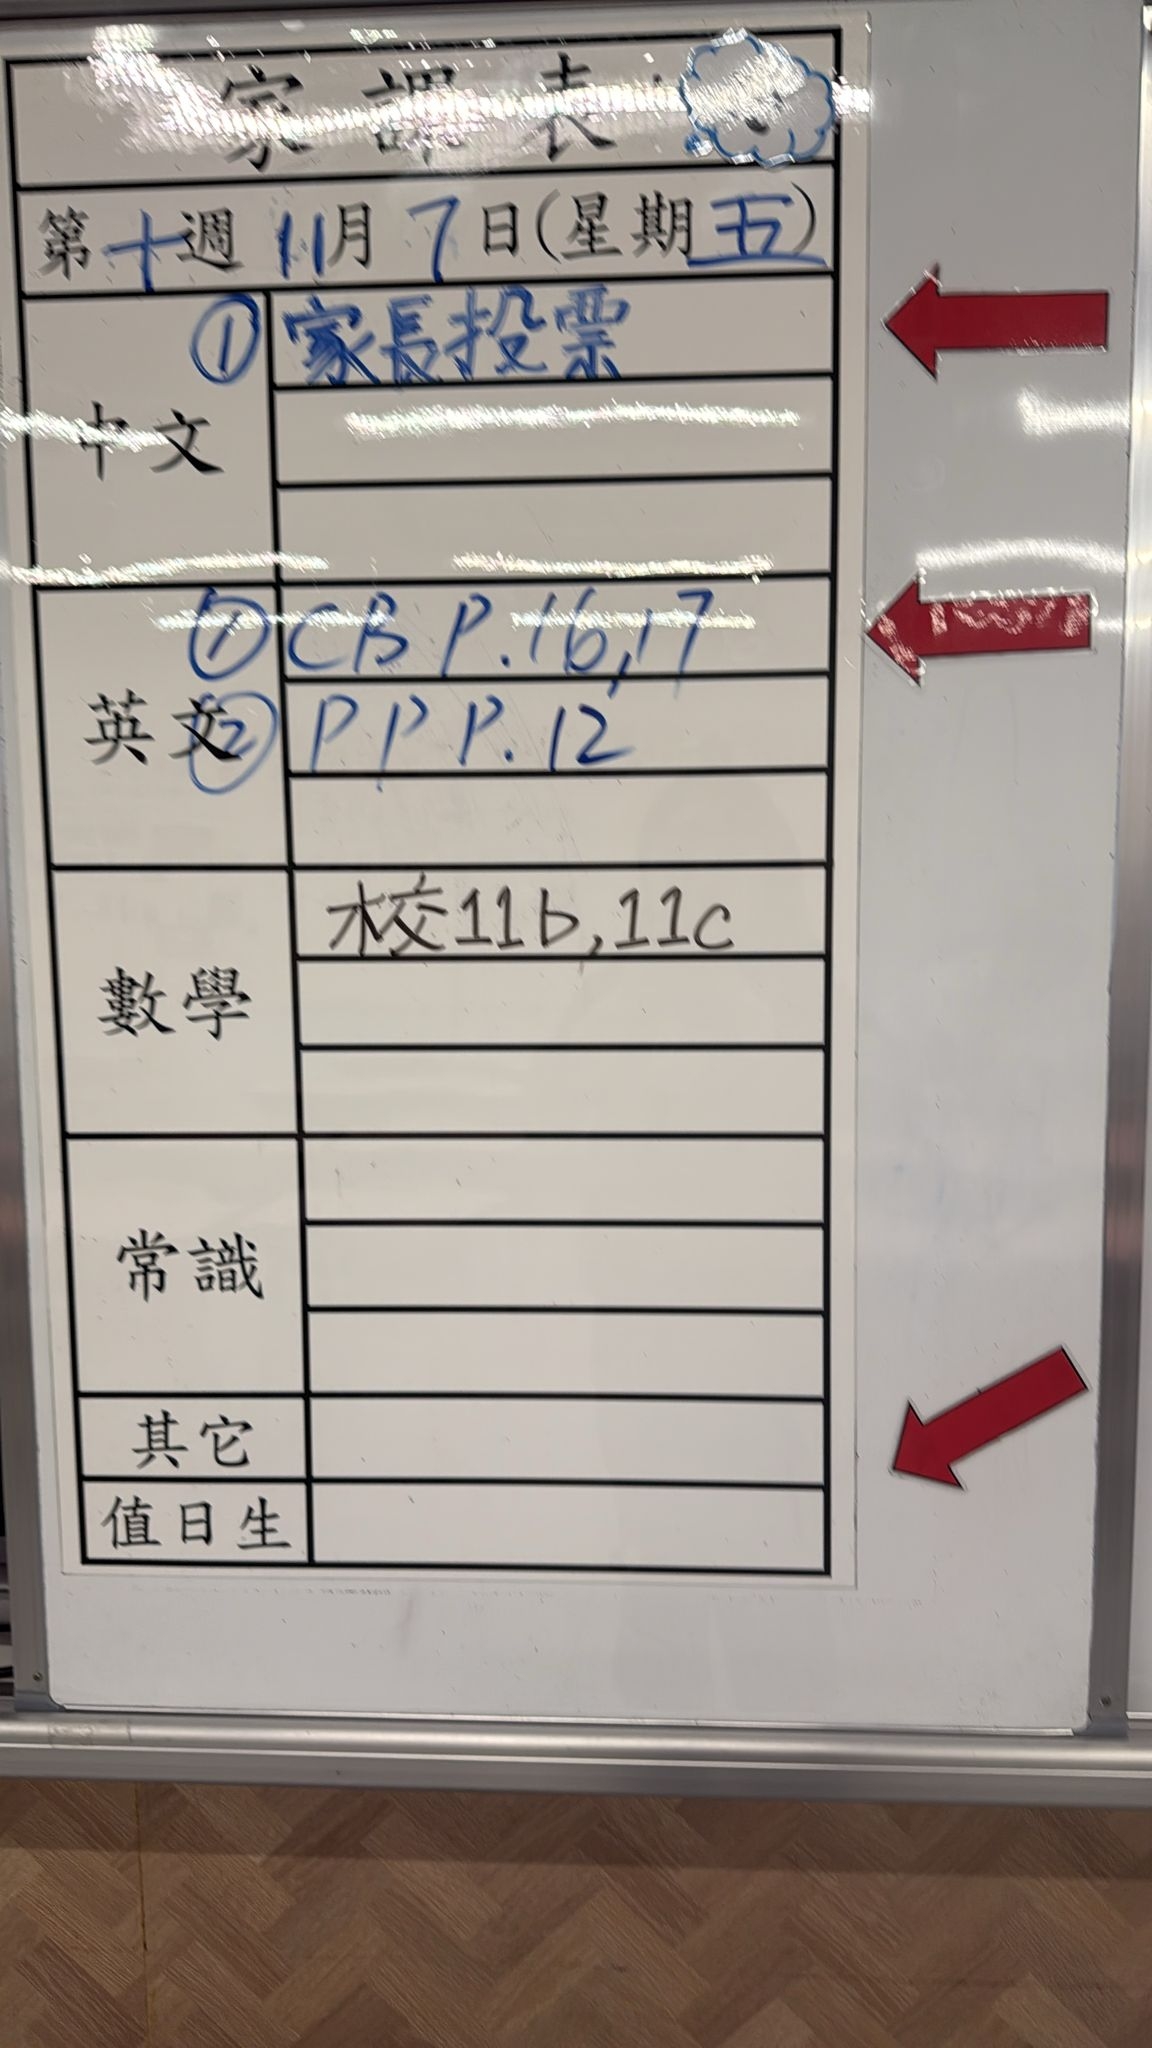 家課表
第十週 11月7日(星期五)
中文
① 家長投票
英文
① CB P.16,17
② PP P.12
數學
校11b,11c
常識
其它
值日生